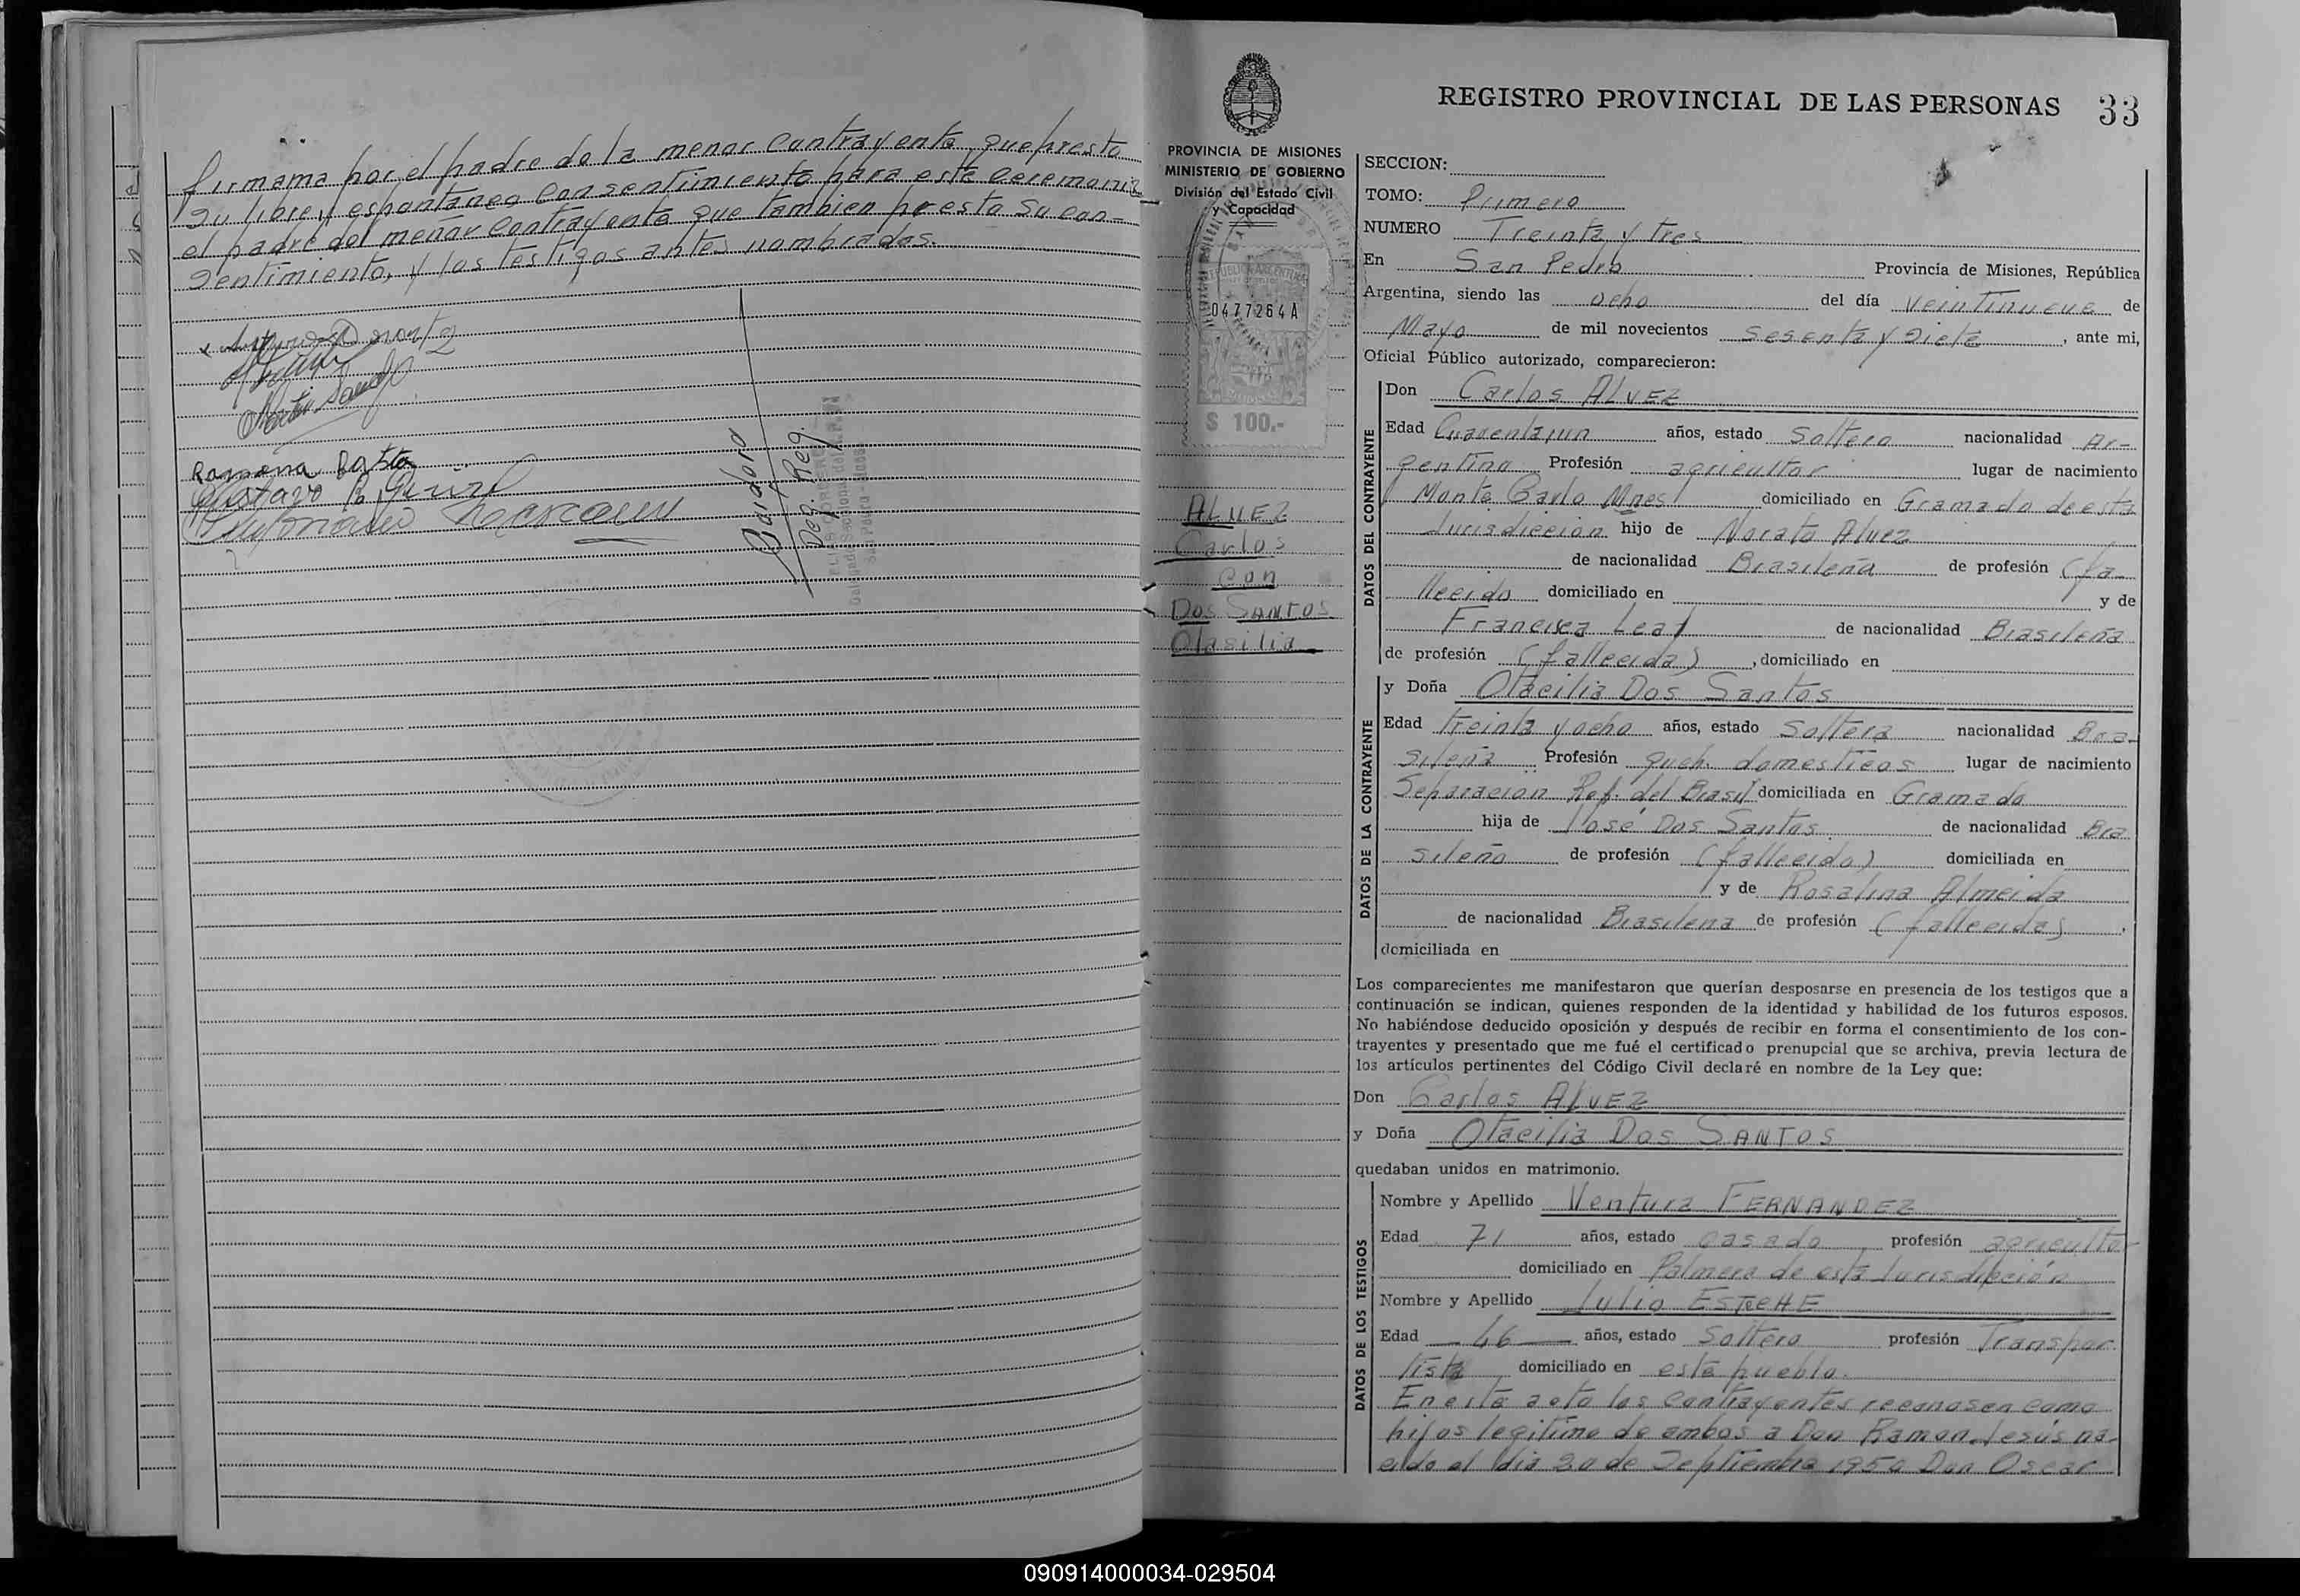 firmama por el padre de la menor Contrayente, que presta
su libre y espontaneo consentimiento para esta ceremonia
el padre del menor Contrayente que tambien presta su con-
sentimiento, y los testigos antes nombrados.
Ramona
Gustavo
Deg. Reg.
REGISTRO PROVINCIAL DE LAS PERSONAS 33
PROVINCIA DE MISIONES
MINISTERIO DE GOBIERNO
División del Estado Civil
y Capacidad
REPUBLICA ARGENTINA
0477264A
$ 100.-
ALVEZ
Carlos
con
Dos SANTOS
Otasilia
SECCION:
TOMO: Primero
NUMERO Treinta y tres
En San Pedro Provincia de Misiones, República
Argentina, siendo las ocho del día veintinueve de
Mayo de mil novecientos sesenta y siete, ante mi,
Oficial Público autorizado, comparecieron:
DATOS DEL CONTRAYENTE
Don Carlos ALVEZ
Edad Cuarentaiun años, estado Soltero nacionalidad Ar-
gentino Profesión agricultor lugar de nacimiento
Monte Carlo Mnes domiciliado en Gramado de esta
Jurisdiccion hijo de Norato Alvez
de nacionalidad Brasileña de profesión (fa-
llecido domiciliado en y de
Francisca Leal de nacionalidad Brasileña
de profesión (fallecida), domiciliado en
DATOS DE LA CONTRAYENTE
y Doña Otacilia Dos Santos
Edad treinta y ocho años, estado Soltera nacionalidad Bra-
sileña Profesión queh. domesticos lugar de nacimiento
Separacion Rep. del Brasil domiciliada en Gramado
hija de José Dos Santos de nacionalidad Bra
sileño de profesión (fallecido) domiciliada en
y de Rosalina Almeida
de nacionalidad Brasilena de profesión (fallecida),
domiciliada en
Los comparecientes me manifestaron que querían desposarse en presencia de los testigos que a
continuación se indican, quienes responden de la identidad y habilidad de los futuros esposos.
No habiéndose deducido oposición y después de recibir en forma el consentimiento de los con-
trayentes y presentado que me fué el certificado prenupcial que se archiva, previa lectura de
los artículos pertinentes del Código Civil declaré en nombre de la Ley que:
Don Carlos ALVEZ
y Doña Otacilia Dos SANTOS
quedaban unidos en matrimonio.
DATOS DE LOS TESTIGOS
Nombre y Apellido Ventura FERNANDEZ
Edad 71 años, estado casado profesión agricultor
domiciliado en Palmera de esta Jurisdicción
Nombre y Apellido Julio
Edad 46 años, estado Soltero profesión Transpor
tista domiciliado en este pueblo.
En este acto los contrayentes reconosen como
hijos legitimo de ambos a Don Ramon Jesús na-
cido el dia 20 de Septiembre 1950 Don Oscar
090914000034-029504